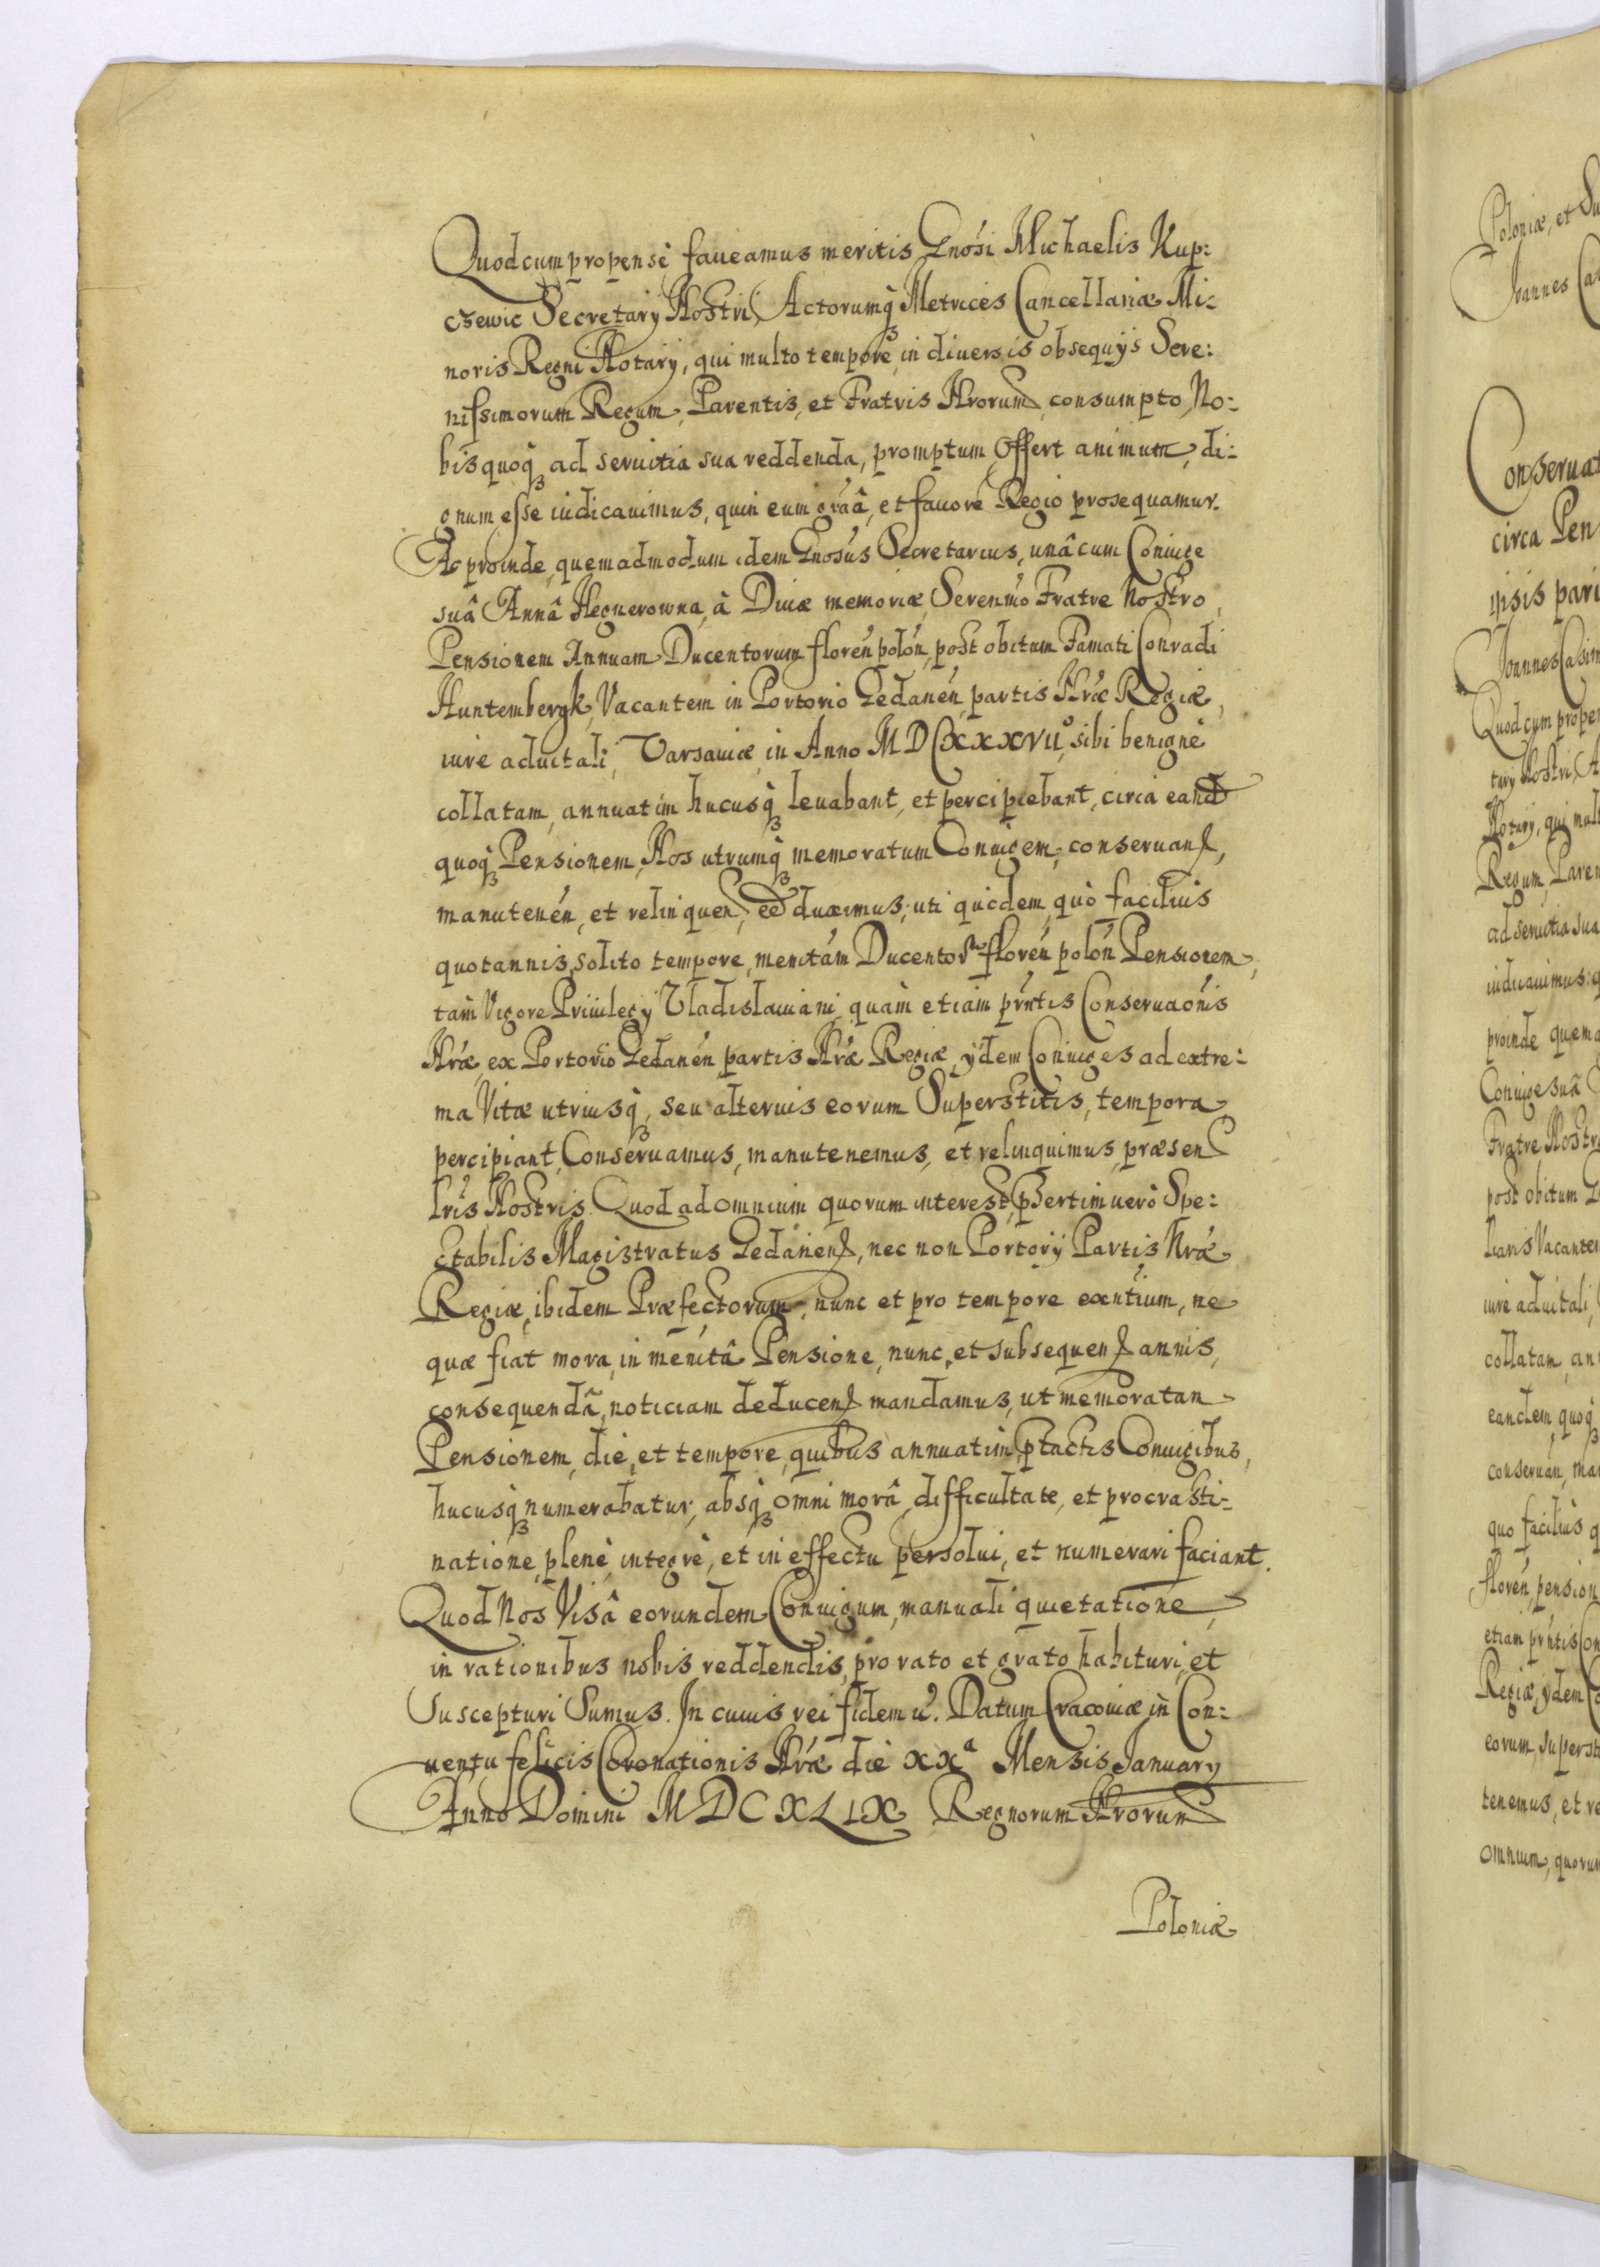 Quod cum propensè faueamus meritis Gnosi Michaelis Kup:
czewic Secretarÿ Nostri, Actorumq́ Metrices Cancellariæ Mi:
noris Regni Notarÿ, qui multo tempore, in diuersis obsequÿs Sere:
nissimorum Regum, Parentis, et Fratris Nrorum, consumpto, No:
bis quoq́ ad seruitia sua reddenda, promptum Offert animum, di:
gnum esse iudicauimus, quin eum grãâ, et fauore Regio prosequamur.
Ac proinde, quemadmodum idem Gnosus Secretarius, unâ cum Coniuge
suâ Annâ Hegnerowna, à Diuæ memoriæ, Serenmo Fratre Nostro,
Pensionem Annuam Ducentorum floren polon, post obitum Famati Conradi
Huntembergk, Vacantem in Portorio Gedanen, partis Nræ Regiæ,
iure aduitali, Varsauiæ, in Anno MDCXXXVII.º sibi benignè
collatam, annuatim hucusq́ leuabant, et percipiebant, circa eand
quoq́ Pensionem, Nos utrumq́ memoratum Coniugem, conseruan,
manutenen, et relinquen, eẽ duximus; uti quidem, quò faciliùs
quotannis, solito tempore, meritam Ducentor floren polon Pensionem,
tàm Vigore Priuilegÿ Vladislauiani, quàm etiam prntis Conseruaonis
Nræ, ex Portorio Gedanen, partis Nræ Regiæ, ÿdem Coniuges ad extre:
ma Vitæ utriusq́, seu alterius eorum Superstitis, tempora
percipiant, Conseruamus, manutenemus, et relinquimus, præsen
lris Nostris. Quod ad omnium quorum interest, psertim uerò Spe:
ctabilis Magistratus Gedanen, nec non Portorÿ Partis Nræ
Regiæ, ibidem Præfectorum, nunc et pro tempore exntium, ne
quæ fiat mora, in meritâ Pensione, nunc, et subsequen annis,
consequendâ, noticiam deducen mandamus, ut memoratan
Pensionem, die, et tempore, quibus annuatim, ptactis Coniugibus,
hucusq́ numerabatur, absq́ omni morâ, difficultate, et procrasti:
natione, plenè, integrè, et in effectu persolui, et numerari faciant.
Quod Nos Visâ eorundem Coniugum, manuali quietatione,
in rationibus nobis reddendis, pro rato et grato habituri, et
Suscepturi Sumus. In cuius rei fidem &. Datum Cracouiæ in Con:
uentu felicis Coronationis Nræ die XXª Mensis Januarÿ
Anno Domini MDCXLIX Regnorum Nrorum
Poloniæ
Poloniæ, et Su
Joannes Ca
Conseruat
circa Pen
ipsis pari
Joannes Casim
Quod cum propen
tarÿ Nostri, A
Notarÿ, qui mul
Regum, Paren
ad seruitia sua
iudicauimus: q
proinde quema
Coniuge suâ
Fratre Nostro
post obitum
Vacante
iure aduitali,
collatam, an
eandem, quoq́
conseruan, ma
quo faciliùs q
floren, pension
etiam prntis Con
Regiæ, ÿdem Co
eorum, Superst
tenemus, et re
omnium, quorum